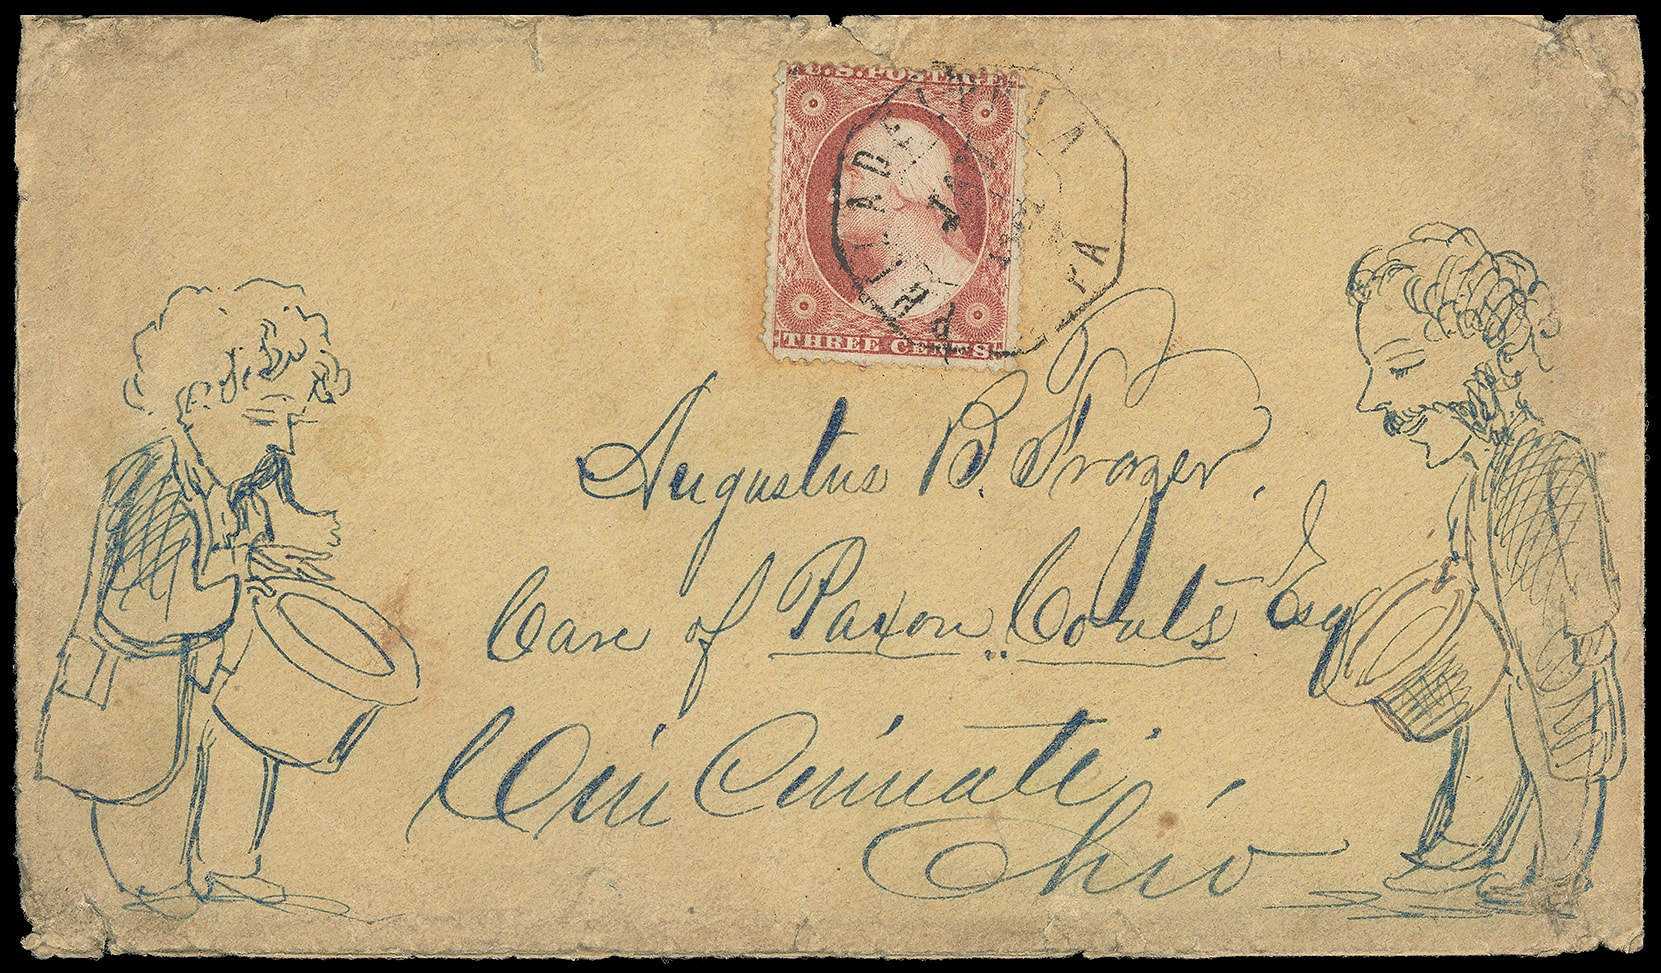 U.S. POSTAGE
THREE CENTS.
PHILADELPHIA PA
Augustus B. Frazer.
Care of Paxon Coats Esq
CinCinnati,
Ohio